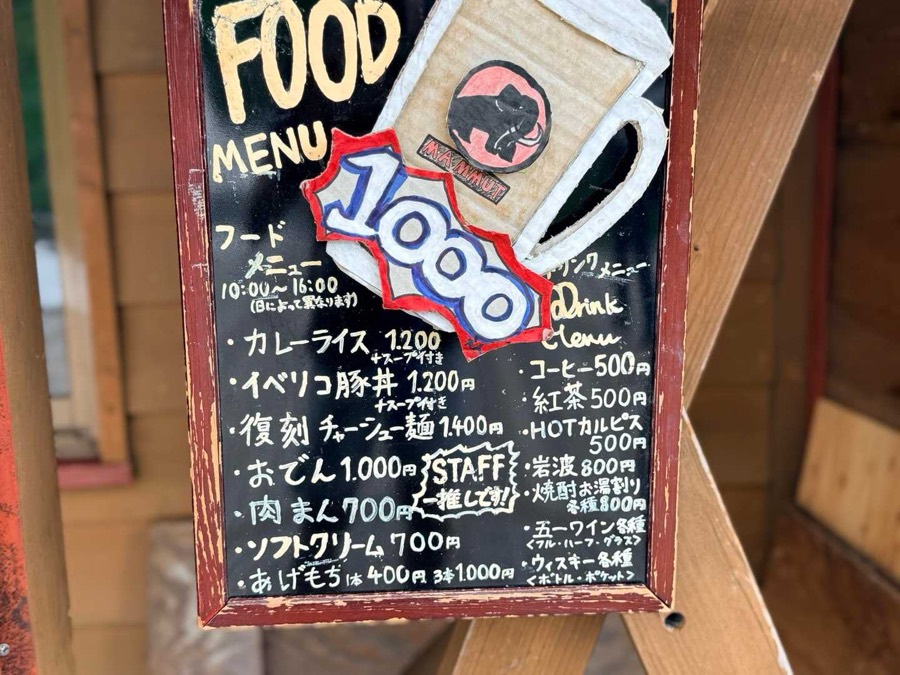 FOOD
MENU
MAMMUT
1000
フード
メニュー
10:00〜16:00
(日によって異なります)
・カレーライス 1.200
+スープ付き
・イベリコ豚丼 1.200円
+スープ付き
・復刻 チャーシュー麺 1.400円
・おでん 1.000円
STAFF
一推しです!
・肉まん 700円
・ソフトクリーム 700円
・あげもち 1本 400円 3本 1.000円
リンク メニュー
Drink
Menu
・コーヒー 500円
・紅茶 500円
・HOTカルピス
500円
・岩波 800円
・焼酎お湯割り
各種 800円
・五一ワイン各種
<フル・ハーフ・グラス>
・ウィスキー各種
<ボトル・ポケット>